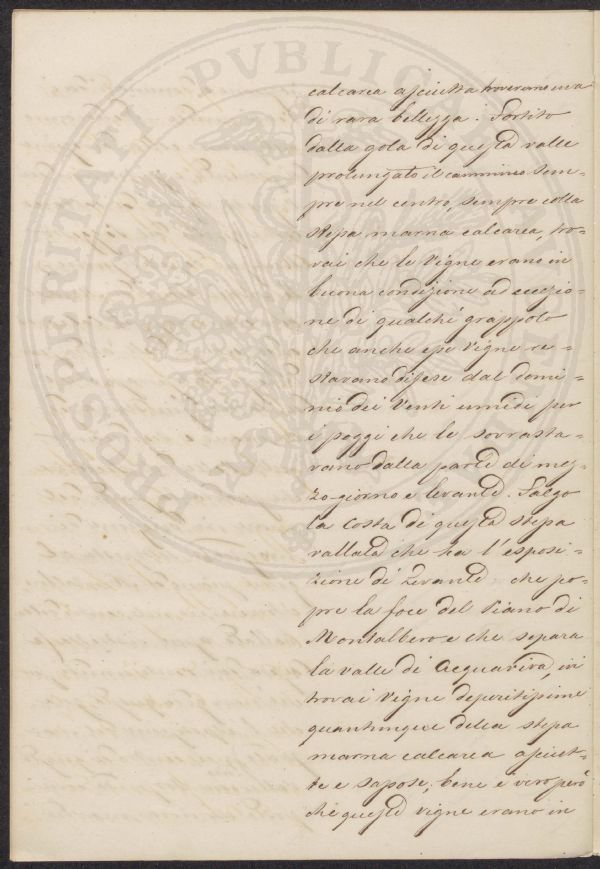 PROSPERITATI PVBLICAE
calcarea asciutta troverano una
di rara bellezza. Sortito
dalla gola di questa valle
prolungato il cammino sem=
pre nel centro, sempre colla
stessa marna calcarea, tro=
vai che le vigne erano in
buona condizione ad eccezio=
ne di qualche grappolo
che anche esse vigne re=
stavano difese dal domi=
nio dei venti umidi per
i poggi che le sovrasta=
vano dalla parte di mez=
zo-giorno e levante. Salgo
la costa di questa stessa
vallata che ha l'esposi=
zione di Levante che
pre la foce del Piano di
Montalbero e che separa
la valle di Acquaviva, ivi
trovai vigne deperitissime
quantunque della stessa
marna calcarea asciut=
te e sapose, bene è vero però
che queste vigne erano in